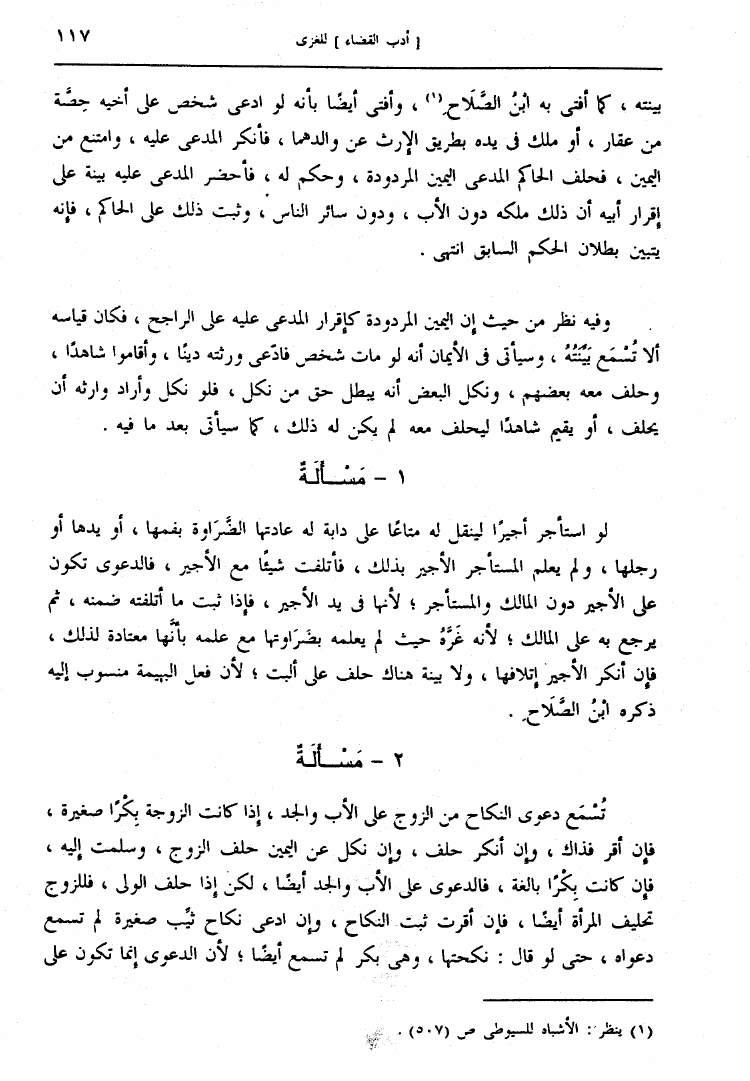 [ أدب القضاء ] للغزى
١١٧
بينته ، كما أفتى به ابْنُ الصَّلَاحِ(١) ، وأفتى أيضًا بأنه لو ادعى شخص على أخيه حِصَّة
من عقار ، أو ملك فى يده بطريق الإرث عن والدهما ، فأنكر المدعى عليه ، وامتنع من
اليمين ، فحلف الحاكم المدعى اليمين المردودة ، وحكم له ، فأحضر المدعى عليه بينة على
إقرار أبيه أن ذلك ملكه دون الأب ، ودون سائر الناس ، وثبت ذلك على الحاكم ، فإنه
يتبين بطلان الحكم السابق انتهى .
وفيه نظر من حيث إن اليمين المردودة كإقرار المدعى عليه على الراجح ، فكان قياسه
ألا تُسْمَع بَيِّنَتُهُ ، وسيأتى فى الأيمان أنه لو مات شخص فادّعى ورثته دينًا ، وأقاموا شاهدًا ،
وحلف معه بعضهم ، ونكل البعض أنه يبطل حق من نكل ، فلو نكل وأراد وارثه أن
يحلف ، أو يقيم شاهدًا ليحلف معه لم يكن له ذلك ، كما سيأتى بعد ما فيه .
١ - مَسْـأَلَـةٌ
لو استأجر أجيرًا لينقل له متاعًا على دابة له عادتها الضَّرَاوة بفمها ، أو يدها أو
رجلها ، ولم يعلم المستأجر الأجير بذلك ، فأتلفت شيئًا مع الأجير ، فالدعوى تكون
على الأجير دون المالك والمستأجر ؛ لأنها فى يد الأجير ، فإذا ثبت ما أتلفته ضمنه ، ثم
يرجع به على المالك ؛ لأنه غَرَّهُ حيث لم يعلمه بضَراوتها مع علمه بأنَّها معتادة لذلك ،
فإن أنكر الأجير إتلافها ، ولا بينة هناك حلف على ألبت ؛ لأن فعل البهيمة منسوب إليه
ذكره ابْنُ الصَّلَاحِ .
٢ - مَسْـأَلَـةٌ
تُسْمَع دعوى النكاح من الزوج على الأب والجد ، إذا كانت الزوجة بِكْرًا صغيرة ،
فإن أقر فذاك ، وإن أنكر حلف ، وإن نكل عن اليمين حلف الزوج ، وسلمت إليه ،
فإن كانت بِكْرًا بالغة ، فالدعوى على الأب والجد أيضًا ، لكن إذا حلف الولى ، فللزوج
تحليف المرأة أيضًا ، فإن أقرت ثبت النكاح ، وإن ادعى نكاح ثيِّب صغيرة لم تسمع
دعواه ، حتى لو قال : نكحتها ، وهى بكر لم تسمع أيضًا ؛ لأن الدعوى إنما تكون على
(١) ينظر : الأشباه للسيوطى ص (٥٠٧) .